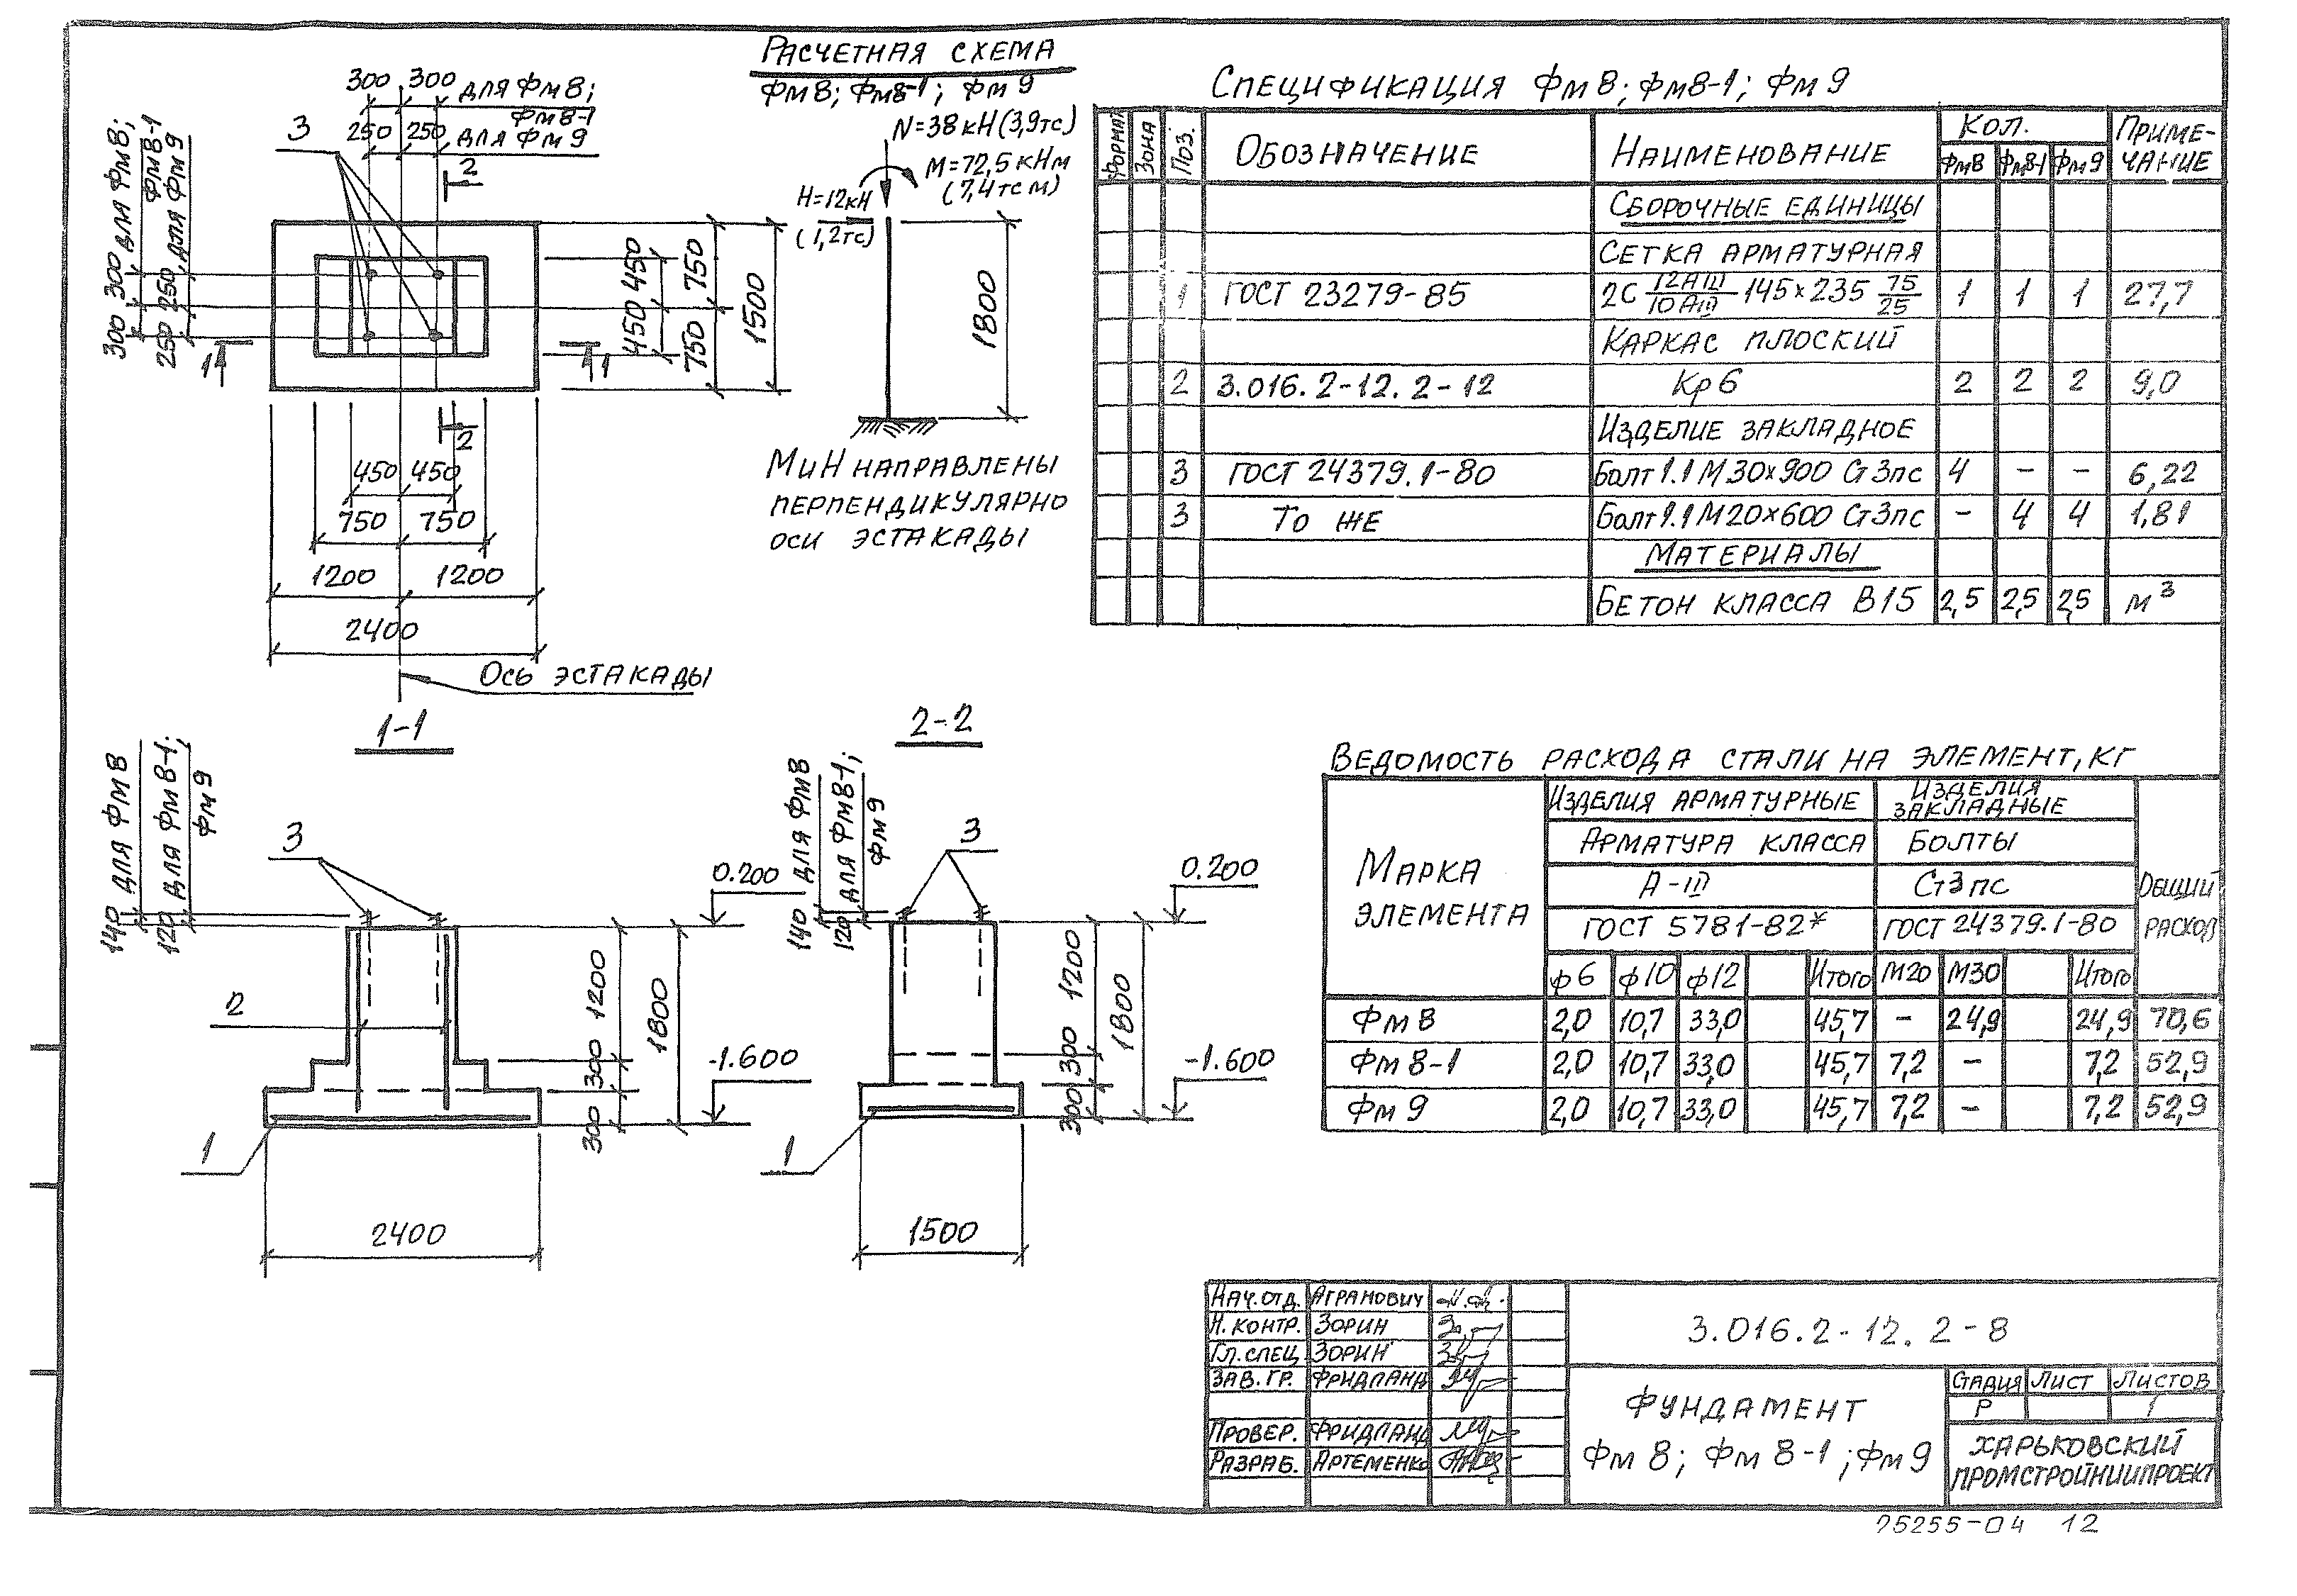 Расчетная схема
Фм8; Фм8-1; Фм9
300 300 для Фм8;
Фм8-1
250 250 для Фм9
3
2
300 300 для Фм8; Фм8-1
250 250 для Фм9
1 1
450 450
750 750
1500
2
450 450
750 750
1200 1200
2400
Ось эстакады
N=38кН(3,9тс)
M=72,5кНм
(7,4тс м)
H=12кН
(1,2тс)
1800
М и Н направлены
перпендикулярно
оси эстакады
Спецификация Фм8; Фм8-1; Фм9
Формат Зона Поз. Обозначение Наименование Кол. Приме-
чание
Фм8 Фм8-1 Фм9
Сборочные единицы
Сетка арматурная
1 ГОСТ 23279-85 2С 12АIII/10АIII 145×235 75/25 1 1 1 27,7
Каркас плоский
2 3.016.2-12.2-12 Кр6 2 2 2 9,0
Изделие закладное
3 ГОСТ 24379.1-80 Болт 1.1 М30×900 Ст3пс 4 – – 6,22
3 То же Болт 1.1 М20×600 Ст3пс – 4 4 1,81
Материалы
Бетон класса В15 2,5 2,5 2,5 м³
1-1
140 для Фм8
120 для Фм8-1;
Фм9
3
0.200
1200
300
300
1800
2
-1.600
1
2400
2-2
140 для Фм8
120 для Фм8-1;
Фм9
3
0.200
1200
300
300
1800
-1.600
1
1500
Ведомость расхода стали на элемент, кг
Марка
элемента
Изделия арматурные Изделия
закладные
Общий
расход
Арматура класса Болты
А-III Ст3пс
ГОСТ 5781-82* ГОСТ 24379.1-80
ф6 ф10 ф12 Итого М20 М30 Итого
Фм8 2,0 10,7 33,0 45,7 – 24,9 24,9 70,6
Фм8-1 2,0 10,7 33,0 45,7 7,2 – 7,2 52,9
Фм9 2,0 10,7 33,0 45,7 7,2 – 7,2 52,9
Нач.отд. Агранович
Н.контр. Зорин
Гл.спец. Зорин
Зав.гр. Фридланд
Провер. Фридланд
Разраб. Артеменко
3.016.2-12.2-8
Фундамент
Фм8; Фм8-1; Фм9
Стадия Лист Листов
Р 1
Харьковский
Промстройниипроект
25255-04 12